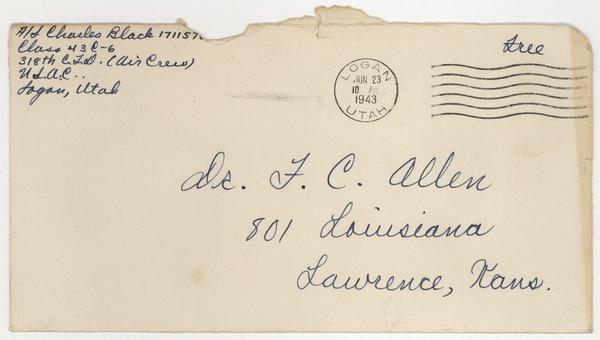 A/S Charles Black 171157
Class 43 C-6
318th C.T.D. (Air Crew)
U.S.A.C..
Logan, Utah
Free
LOGAN
JUN 23
10 AM
1943
UTAH
Dr. F. C. Allen
801 Louisiana
Lawrence, Kans.